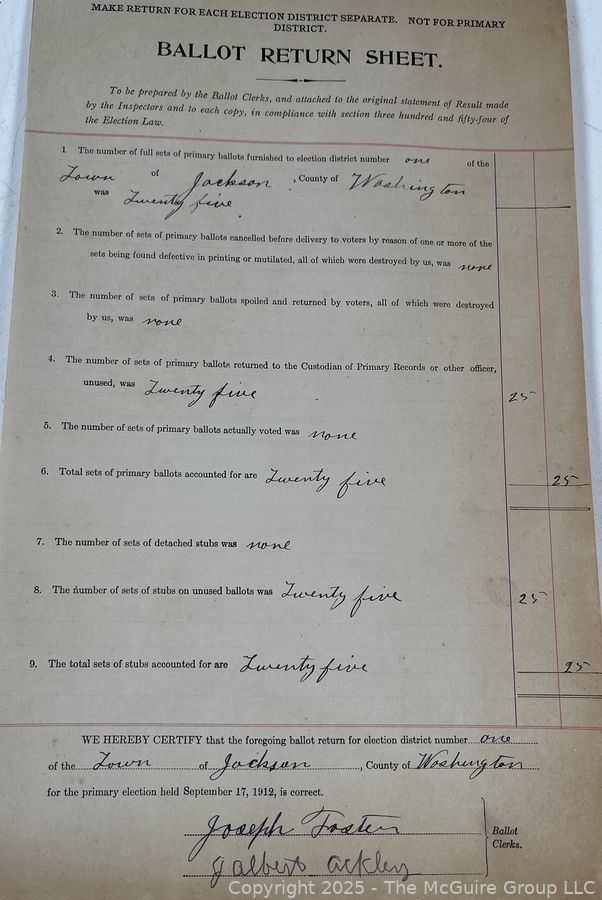 MAKE RETURN FOR EACH ELECTION DISTRICT SEPARATE. NOT FOR PRIMARY
DISTRICT.
BALLOT RETURN SHEET.
To be prepared by the Ballot Clerks, and attached to the original statement of Result made
by the Inspectors and to each copy, in compliance with section three hundred and fifty-four of
the Election Law.
1. The number of full sets of primary ballots furnished to election district number one of the
Town of Jackson, County of Washington
was Twenty five
2. The number of sets of primary ballots cancelled before delivery to voters by reason of one or more of the
sets being found defective in printing or mutilated, all of which were destroyed by us, was none
3. The number of sets of primary ballots spoiled and returned by voters, all of which were destroyed
by us, was none
4. The number of sets of primary ballots returned to the Custodian of Primary Records or other officer,
unused, was Twenty five 25
5. The number of sets of primary ballots actually voted was none
6. Total sets of primary ballots accounted for are Twenty five 25
7. The number of sets of detached stubs was none
8. The number of sets of stubs on unused ballots was Twenty five 25
9. The total sets of stubs accounted for are Twenty five 25
WE HEREBY CERTIFY that the foregoing ballot return for election district number one
of the Town of Jackson, County of Washington
for the primary election held September 17, 1912, is correct.
Joseph Foster
Galbert Ackley
Ballot
Clerks.
Copyright 2025 - The McGuire Group LLC